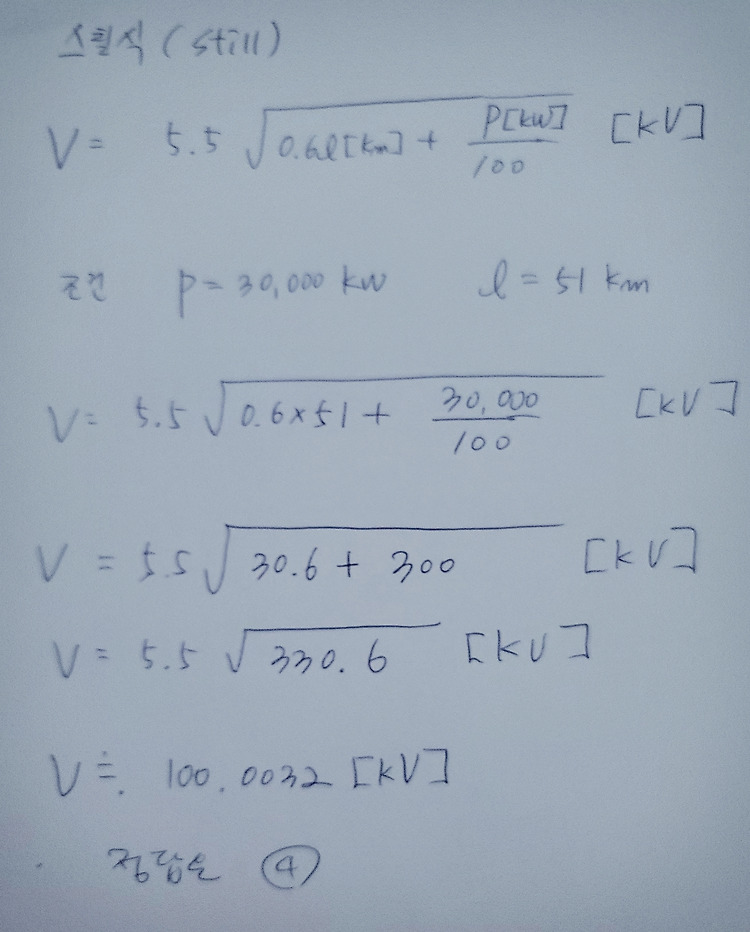 스틸식 (still)
V = 5.5 √(0.6l[km] + P[kW]/100) [kV]
조건 P = 30,000 kW l = 51 km
V = 5.5 √(0.6×51 + 30,000/100) [kV]
V = 5.5 √(30.6 + 300) [kV]
V = 5.5 √(330.6) [kV]
V ≒ 100.0032 [kV]
정답은 ④